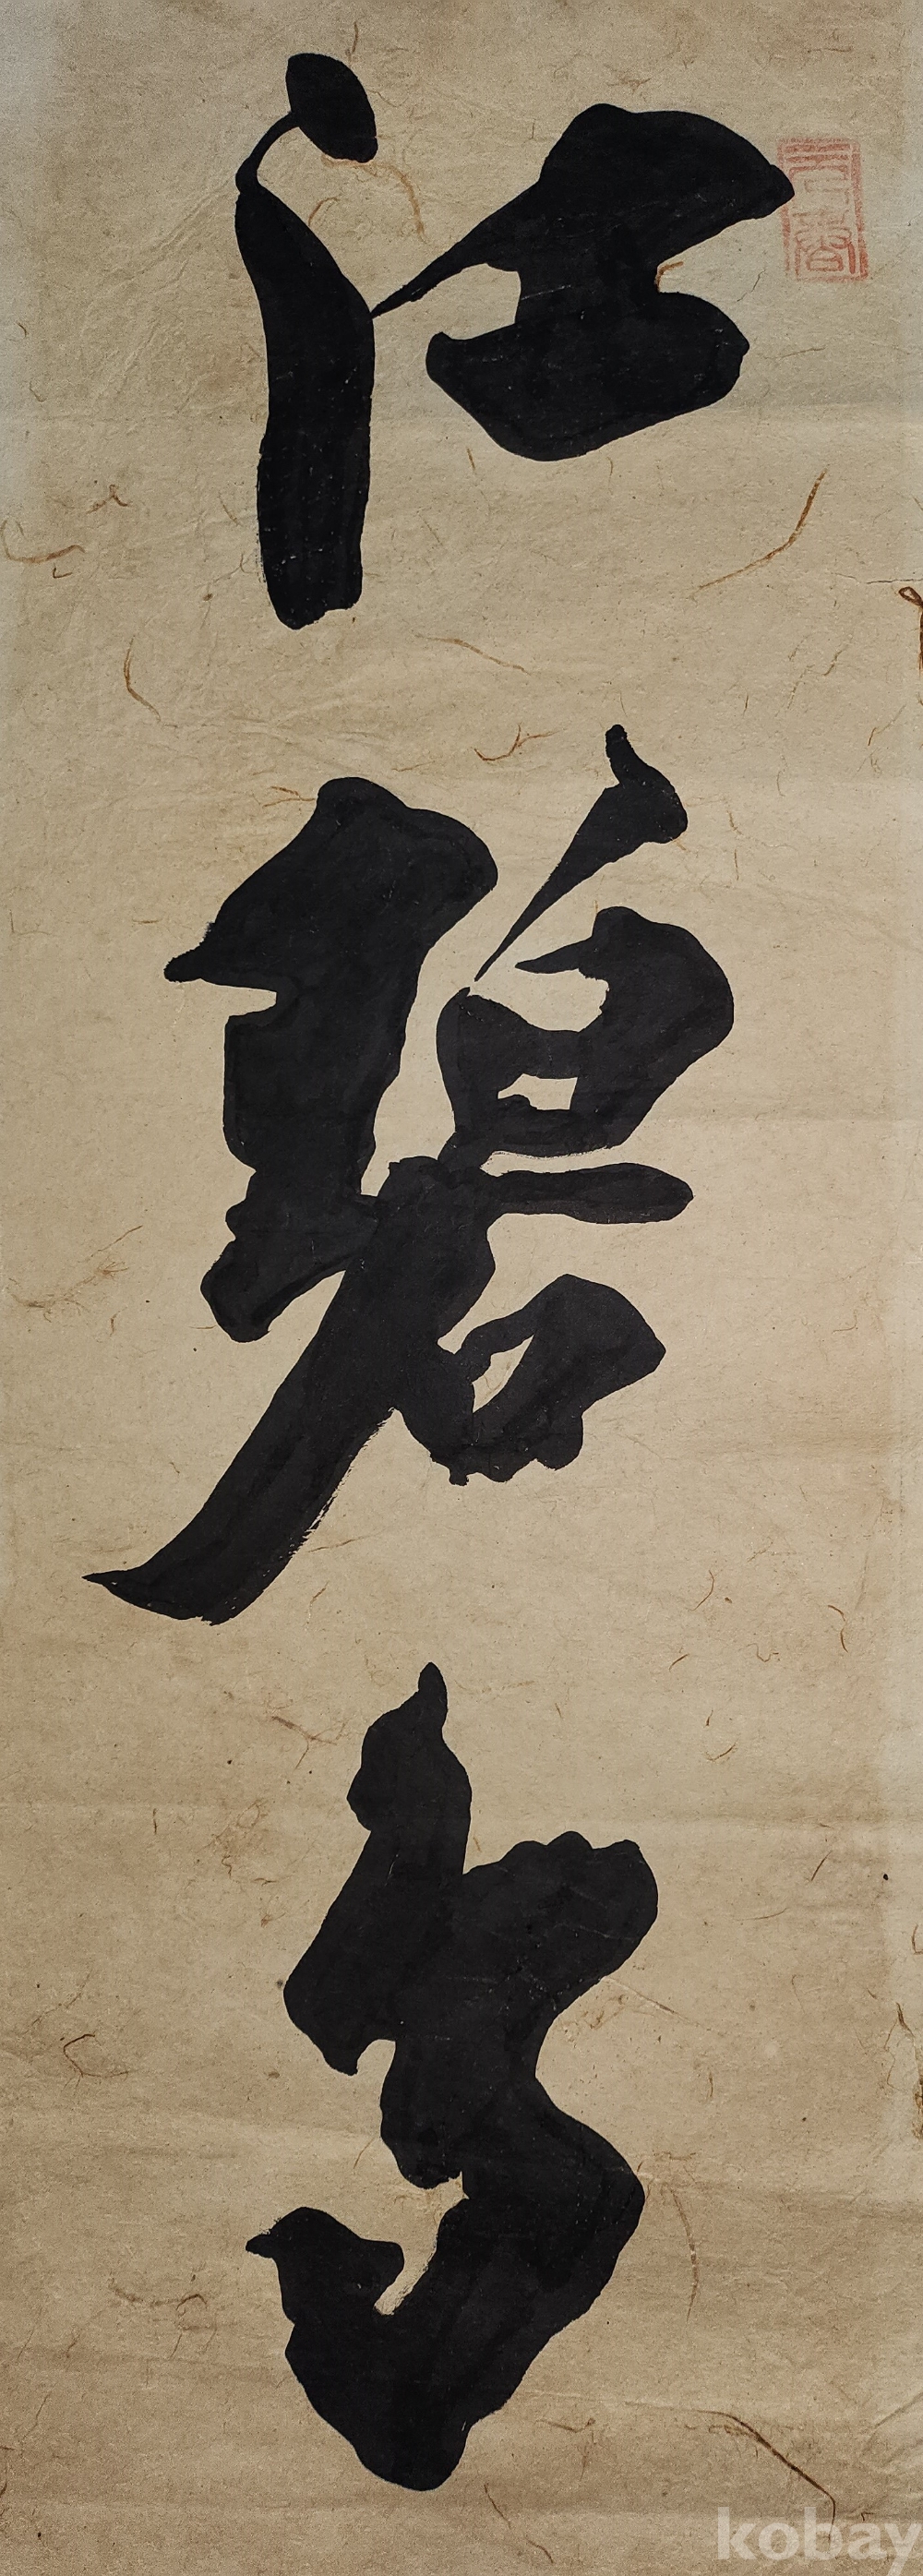 江
碧
鳥
kobay